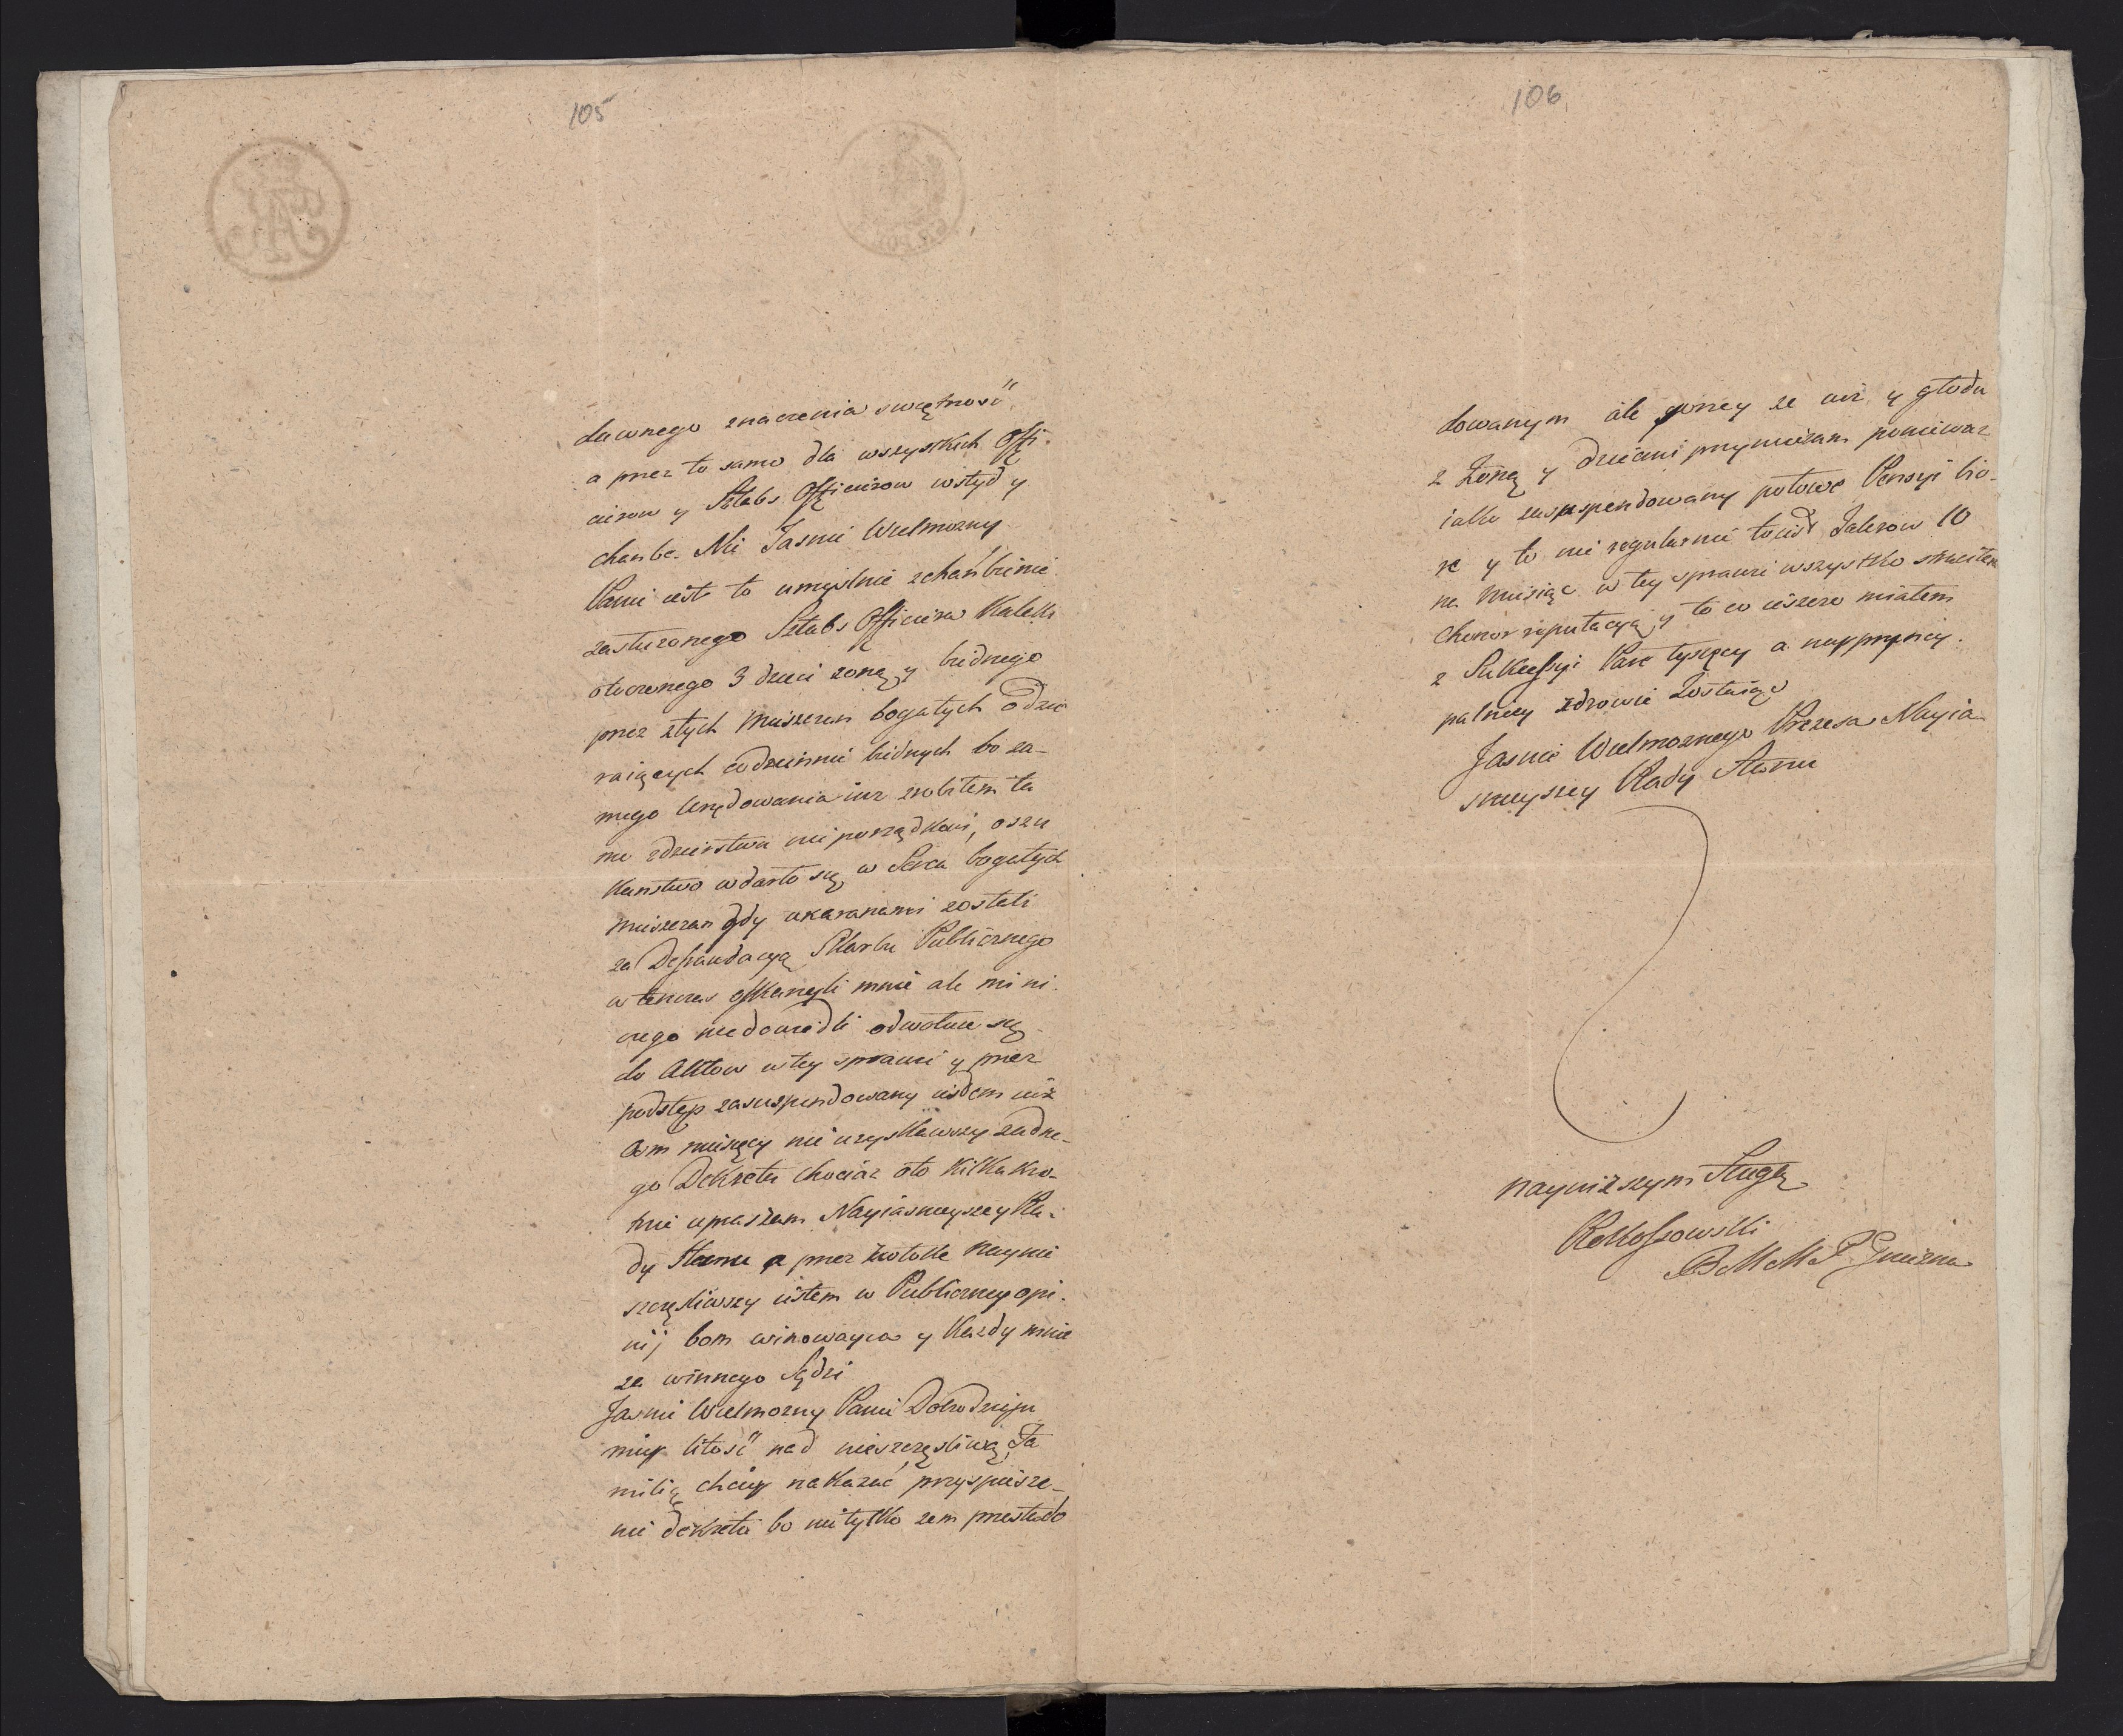 105
dawnego znaczenia swiętność
a przez to samo dla wszystkich Offi-
cierow y Sztabs Officierow wstyd y
chanbe. Nie Jasnie Wielmozny
Panie iest to umyslnie zchańbienie
zasłuzonego Sztabs Officiera Kaleki
otoczonego 3 dzieci zoną y biednego
przez złych mieszczan bogatych odzie
raiących codziennie biednych bo za-
mego Urzędowania iuz zrobiłem ta
me zdzierstwa nieporządkow, oszu
kanstwo wdarło się w Serca bogatych
mieszczan gdy ukaranemi zostali
za Defraudacyą Skarbu Publicznego
w tenczas oskarzyli mnie ale mi ni-
czego niedowiedli odwołuie się
do Aktow w tey sprawie y przez
podstęp zasuspendowany iestem iuż
osm miesięcy nie uzyskawszy zadne-
go Dekretu chociaz oto kilkakro-
tnie uprasałem Nayiasnieyszey Ra-
dy Stanu a przez zwłokę naynie
szczęsliwszy iestem w Publiczney opi-
nij bom winowayca y Kazdy mnie
za winnego Sądzi
Jasnie Wielmozny Panie Dobrodzieju
miey litość nad nieszczęsliwą Fa
milią chciey nakazać przyspiesze-
nie dekretu bo nietylko zem przesłado
106
dowanym ale gorzey ze iuz y głodu
z Zoną y dziecmi przymieram poniewaz
iako zasuspendowany połowe Pensyi bio-
re y to nie regularnie to iest Talerow 10
na Miesiąc w tey sprawie wszystko straciłem
chonor reputacyą y to co ieszcze miałem
z Sukcessyi Pare tysęcy a nayprynicy-
palniey zdrowie Zostaiąc
Jasnie Wielmoznego Prezesa Nayia-
snieyszey Rady Stanu
naynizszym Sługą
Rokossowski
B M M P Gniezna